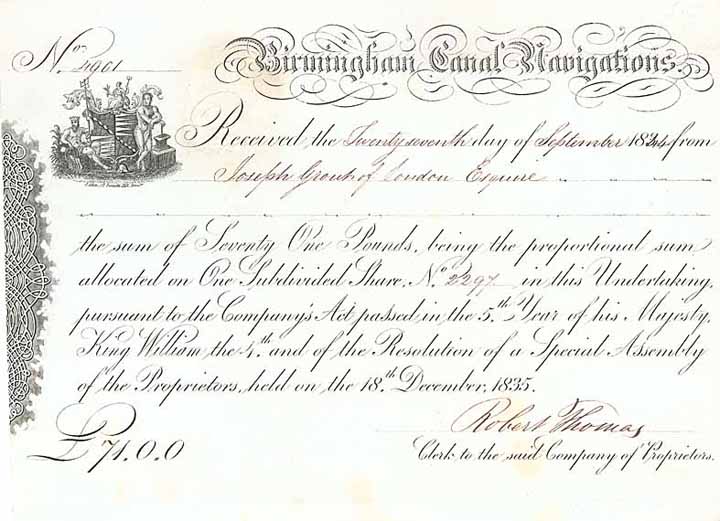 No. 4901
Birmingham Canal Navigations.
Received the Twenty seventh day of September 1844 from
Joseph of London Esquire
the sum of Seventy One Pounds, being the proportional sum
allocated on One Subdivided Share, No. 2297 in this Undertaking,
pursuant to the Company's Act passed in the 5.th Year of his Majesty,
King William the 4.th and of the Resolution of a Special Assembly
of the Proprietors, held on the 18.th December, 1835.
Robert Thomas
£71.0.0
Clerk to the said Company of Proprietors.